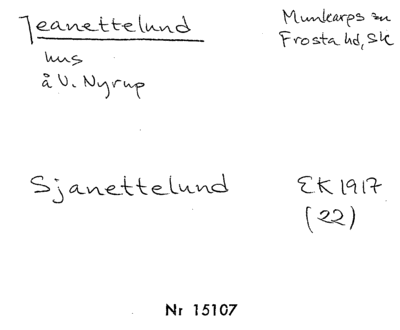 Jeanettelund
Munkarps sn
Frosta hd, Sk
hus
å V. Nyrup
Sjanettelund
EK 1917
(22)
Nr 15107